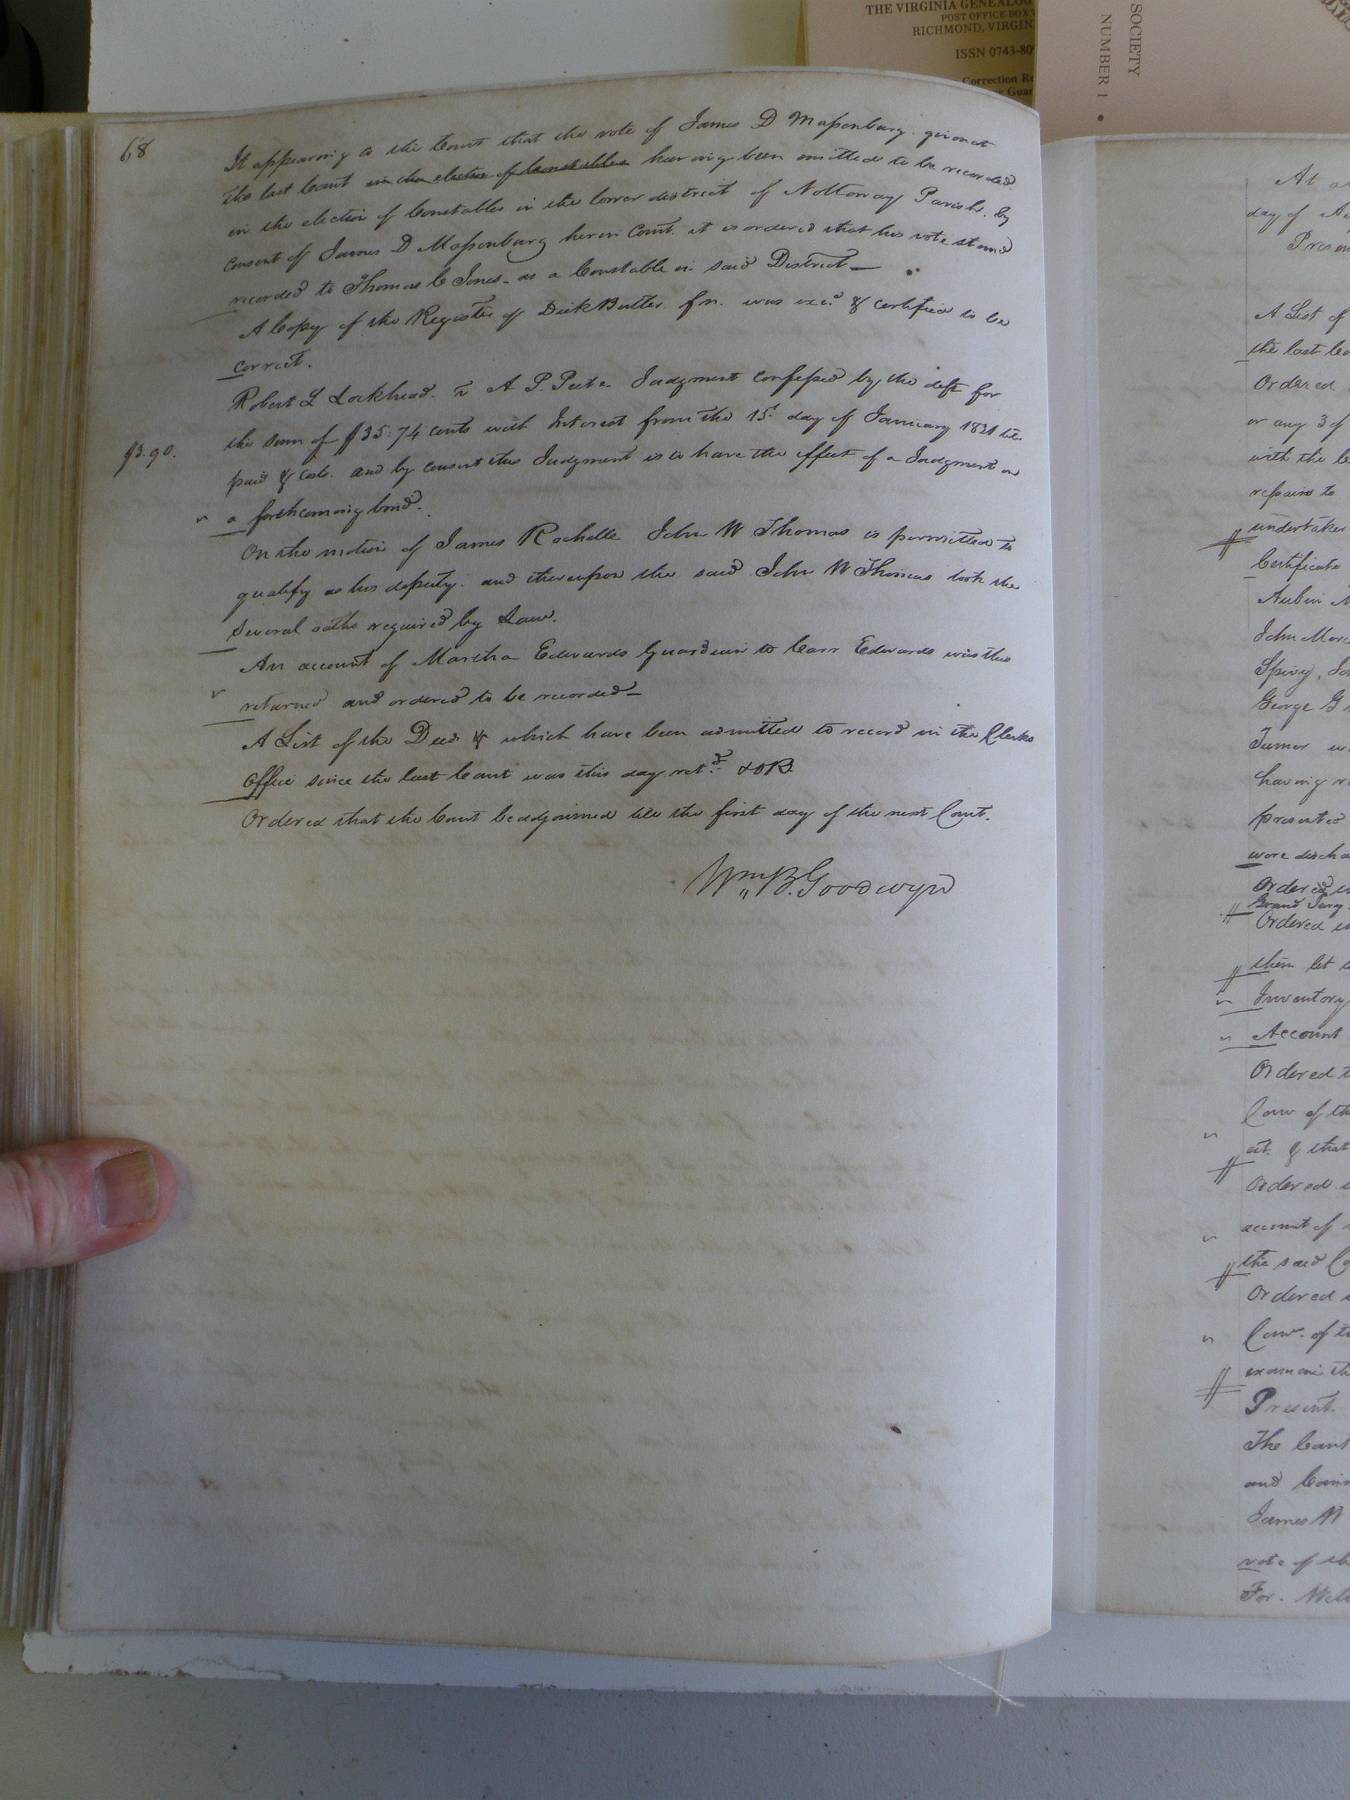 THE VIRGINIA GENEALOG
POST OFFICE BOX
RICHMOND, VIRGIN
ISSN 0743-809
Correction Re
Guar
SOCIETY
NUMBER 1
68
It appearing to the Court that the vote of James D Massenburg given at
the last Court in the election of Constables having been omitted to be recorded
in the election of Constables in the lower district of Nottoway Parish. by
consent of James D Massenburg here in Court it is ordered that his vote stand
recorded to Thomas C Jones as a Constable in said District
A Copy of the Register of Dick Butler fn. was exd & certified to be
correct.
Robert L Lockhead. vs A. P. Peete Judgment confessed by the deft for
the sum of $35.74 cents with Interest from the 15t day of January 1831 till
$3.90.
paid & costs. and by consent this Judgment is to have the effect of a Judgment on
a forthcoming bond.
On the motion of James Rochelle John W Thomas is permitted to
qualify as his deputy. and thereupon the said John W Thomas took the
several oaths required by Law.
An account of Martha Edwards Guardian to Carr Edwards was this
returned and ordered to be recorded
A List of the Deeds & which have been admitted to record in the Clerks
Office since the last Court was this day retd. & OR.
Ordered that the Court be adjourned till the first day of the next Court.
Wm. B. Goodwyn
At a
day of Au
Presen
A List of
the last Co
Ordered
or any 3 of
with the
repairs to
undertaker
Certificate
Aubin
John More
Spivy, Jo
George G
Turner
having
presented
were discha
Ordered
Grand Jury
Ordered
them let
Inventory
Account
Ordered t
Cow of th
est. & that
Ordered
account of
the said Co
Ordered
Cow. of t
examine th
Present.
The Court
and
James W
vote of th
For. Will